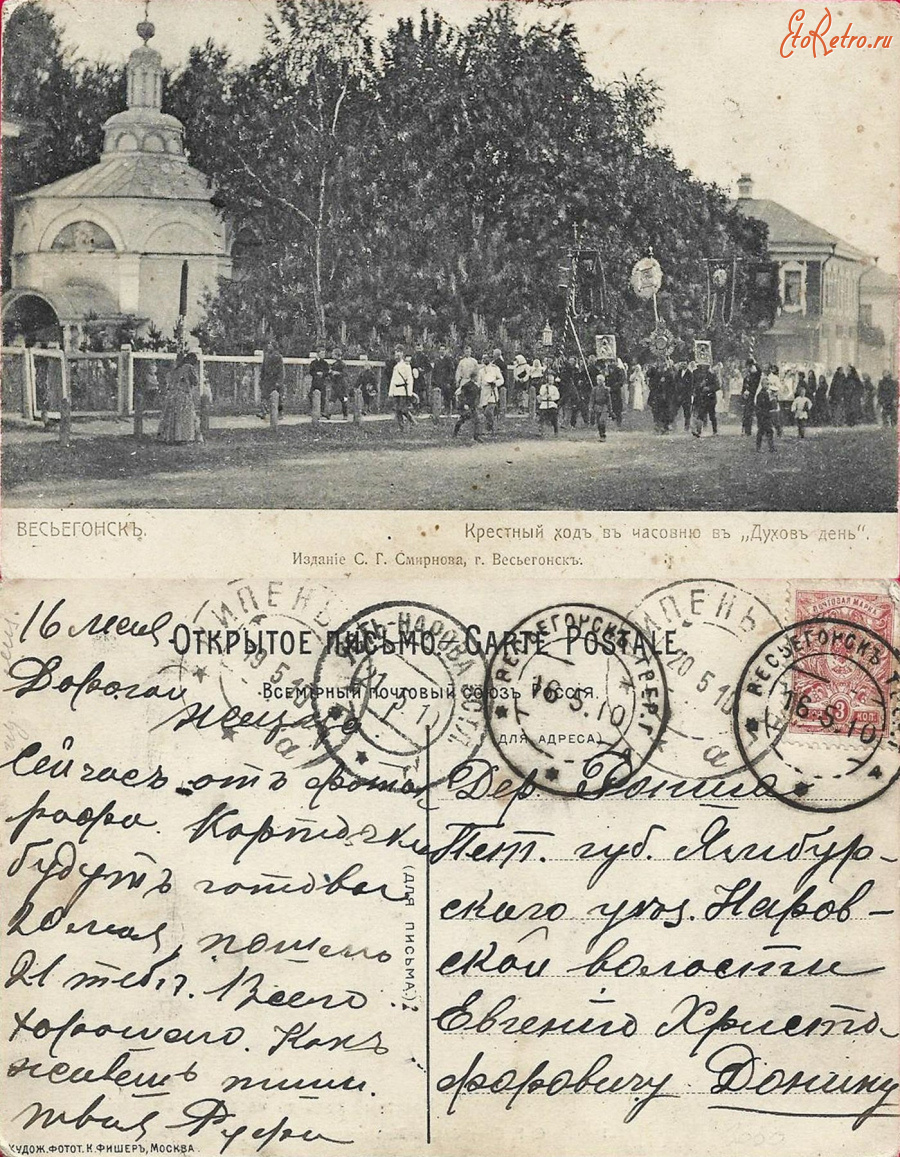 EtoRetro.ru
ВЕСЬЕГОНСКЪ.
Крестный ходъ въ часовню въ „Духовъ день“.
Изданіе С. Г. Смирнова, г. Весьегонскъ.
ОТКРЫТОЕ ПИСЬМО. CARTE POSTALE
ВСЕМІРНЫЙ ПОЧТОВЫЙ СОЮЗЪ РОССІЯ.
(ДЛЯ АДРЕСА)
ПОЧТОВАЯ МАРКА
3 КОП
ВЕСЬЕГОНСКЪ ТВЕР. Г
16-5-10
ВЕСЬЕГОНСКЪ ТВЕР
16-5-10
ИПЕНЬ
19 5 10
а
ИПЕНЬ
20 5 10
а
16 мая
Дорогой
Сейчасъ отъ фотог
рафа. Карточки
будутъ готовы
20 мая, пошлю
21 тебѣ. Всего
хорошаго. Какъ
живешь пиши.
твоя
(ДЛЯ ПИСЬМА)
Дер.
Пет. губ. Ямбур-
скаго уѣз. Наров-
ской волости
Евгенію Христо-
форовичу Донину
ХУДОЖ. ФОТОТ. К. ФИШЕРЪ, МОСКВА.